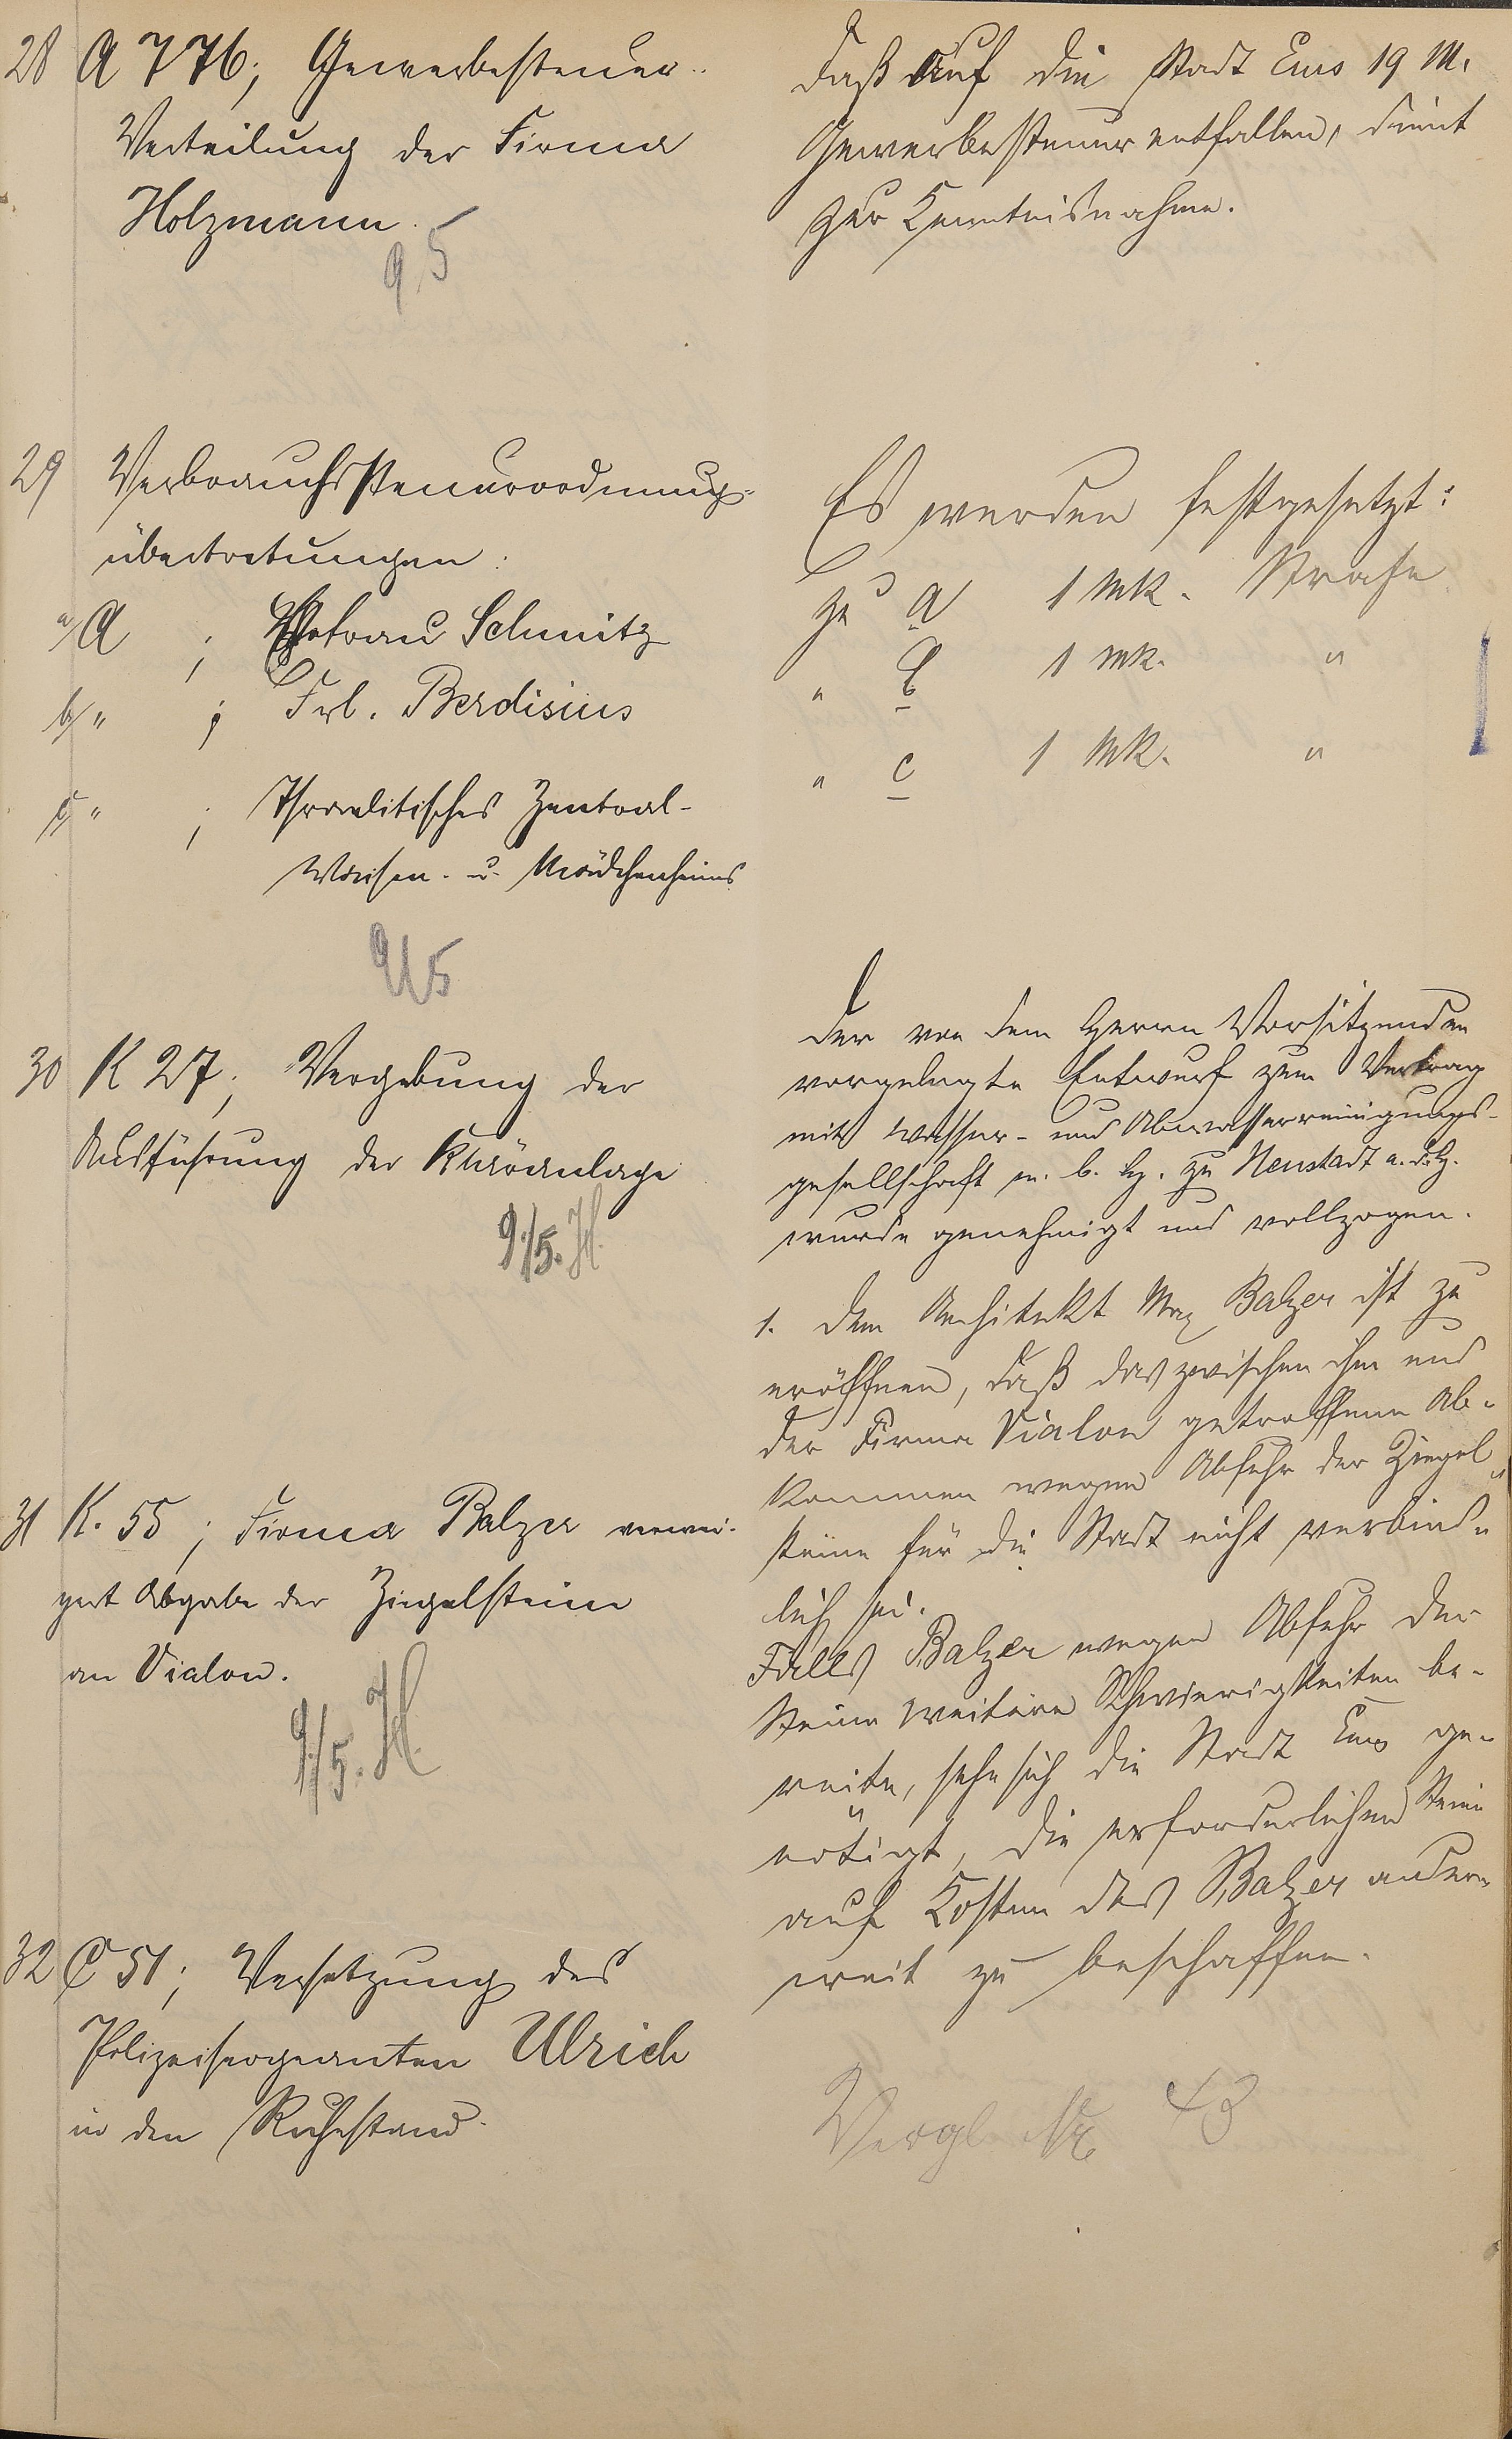 28 A 776; Gewerbesteuer-
Verteilung der Firma
Holzmann.
9 5
daß auf die Stadt Ems 19 M.
Gewerbesteuer entfallen, dient
zur Kenntnisnahme.
29 Verbrauchssteuerordnung-
übertretungen:
a/ A ; Ehefrau Schmitz
b/ " ; Frl. Berdisius
c/ " ; Israelitisches Zentral-
Waisen- u. Mädchenheims
9/5
Es werden festgesetzt:
zu a 1 Mk. Strafe
" b 1 Mk. "
" c 1 Mk. "
30 K 27; Vergebung der
Ausführung der Kläranlage
9./5. H.
Der von dem Herrn Vorsitzenden
vorgelegte Entwurf zum Vertrag
mit Wasser- und Abwasserreinigungs-
gesellschaft m. b. H. zu Neustadt a. d. H.
wurde genehmigt und vollzogen.
31 K. 55; Firma Balzer verwei-
gert Abgabe der Ziegelsteine
an Vialon.
9./5. H.
1. Dem Architekt Max Balzer ist zu
eröffnen, daß das zwischen ihm und
der Firma Vialon getroffene Ab-
kommen wegen Abfuhr der Ziegel-
steine für die Stadt nicht verbind-
lich sei.
Falls Balzer wegen Abfuhr der
Steine weitere Schwierigkeiten be-
reite, sehe sich die Stadt Ems ge-
nötigt, die erforderlichen Steine
auf Kosten des Balzer ander-
weit zu beschaffen.
32 C 51; Versetzung des
Polizeisergeanten Ulrich
in den Ruhestand.
Vergl. Nr. 43